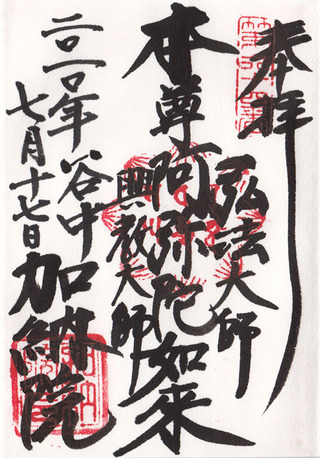 奉拝
弘法大師
本尊阿弥陀如来
興教大師
二〇一〇年谷中加納院
七月十七日